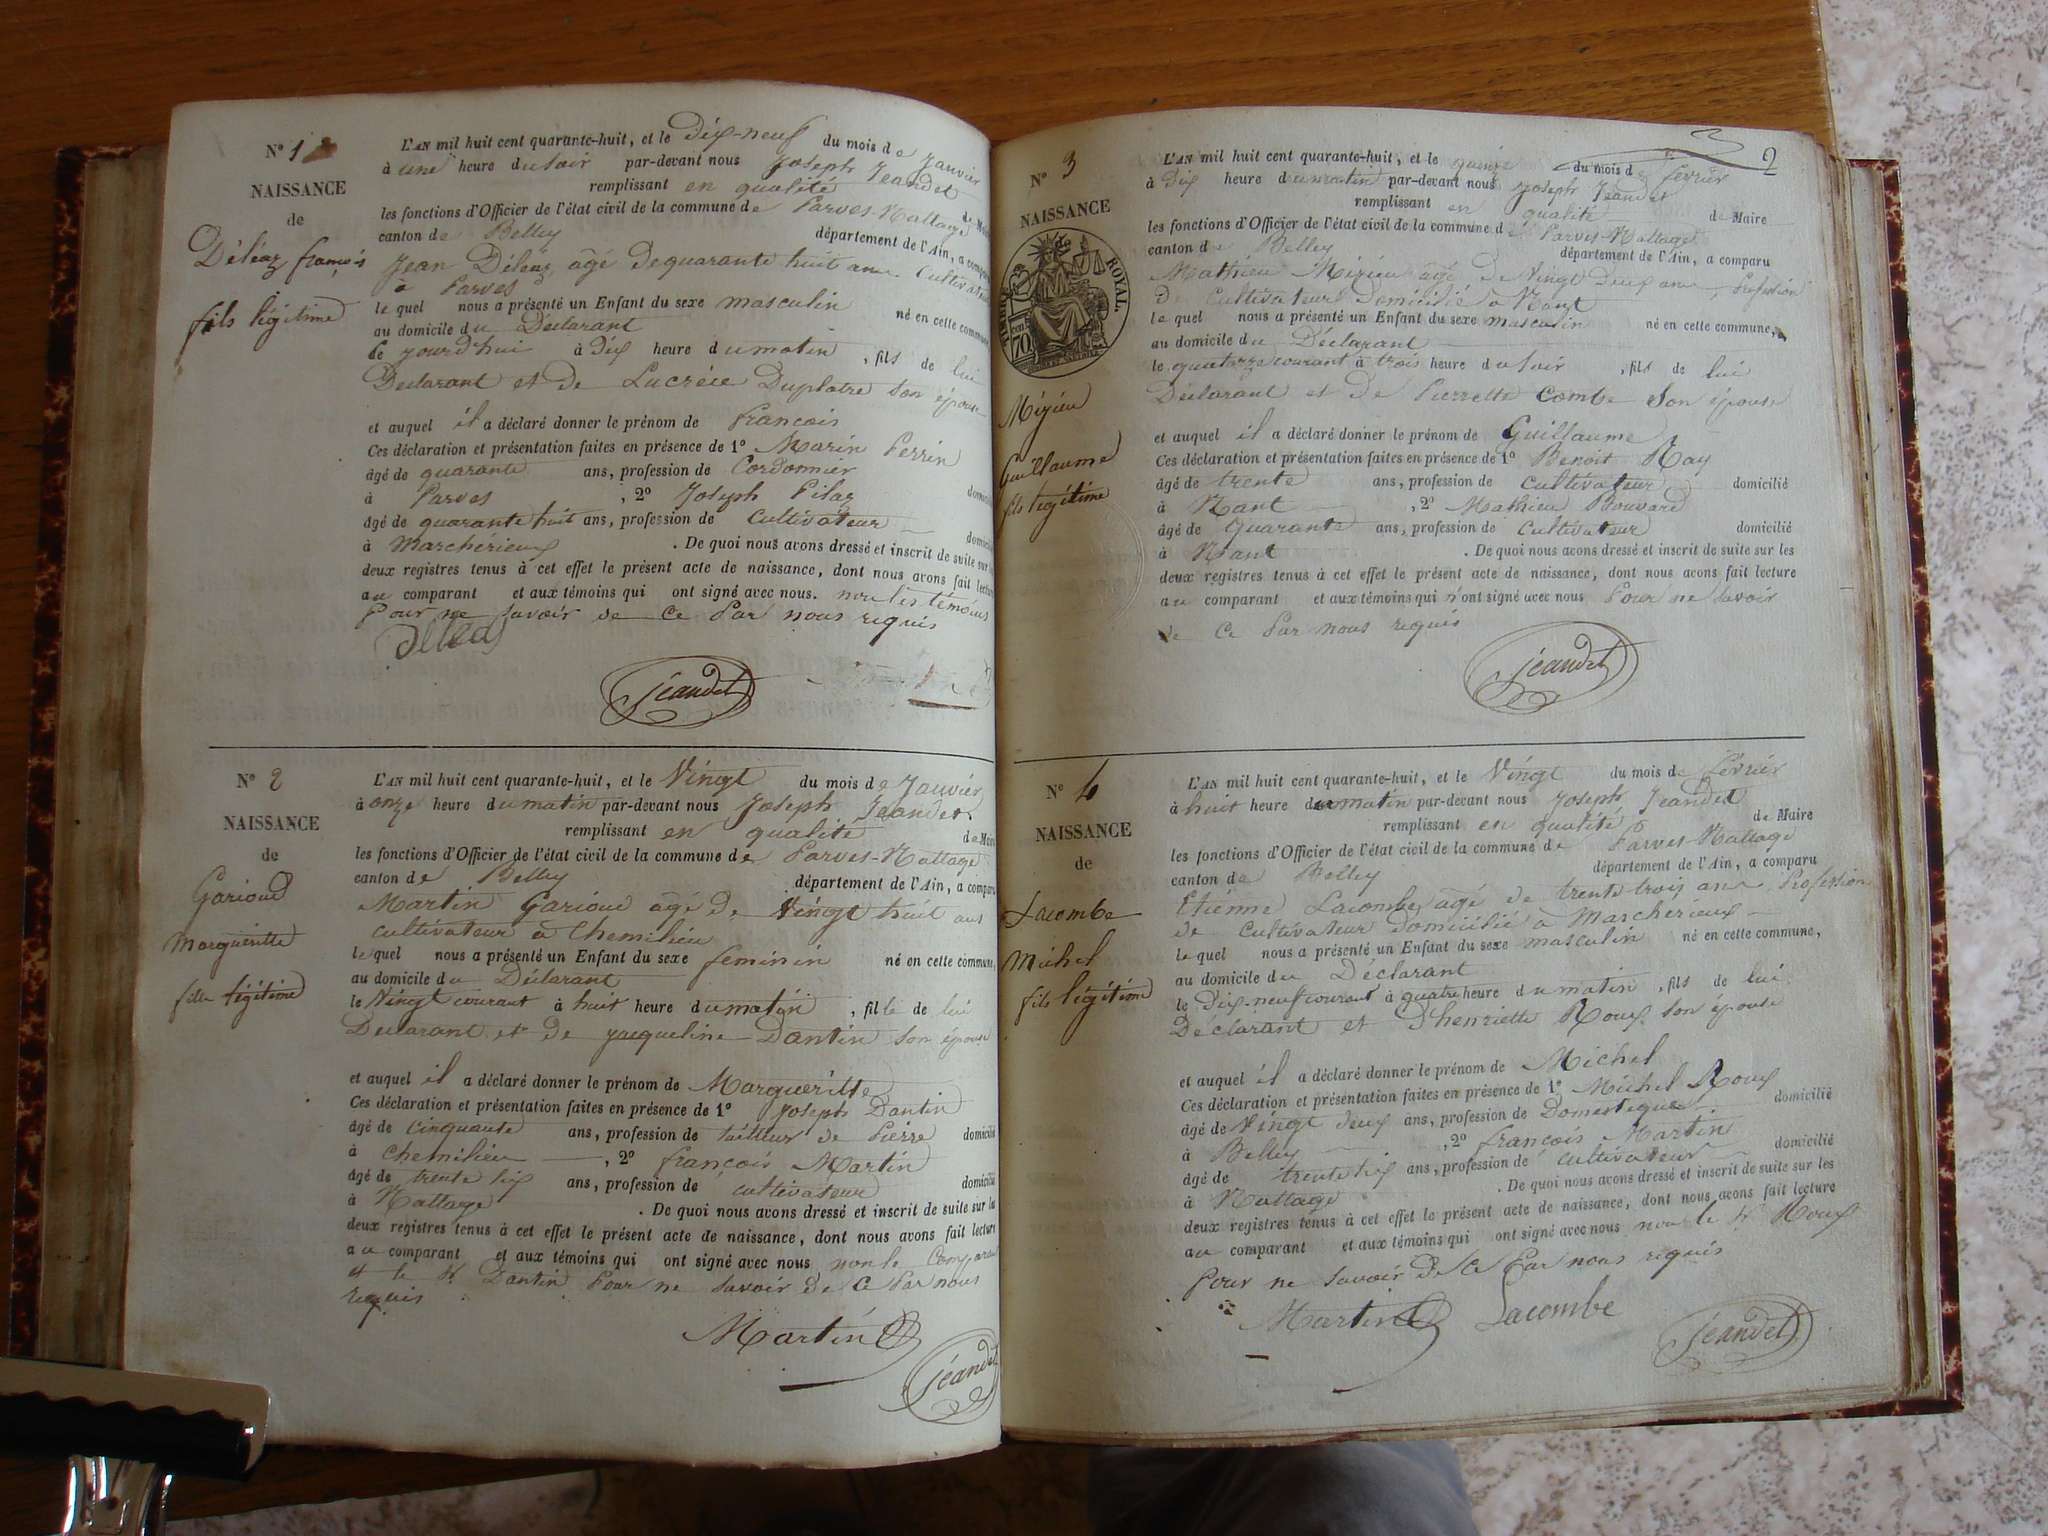 N° 1
NAISSANCE
de
Déléaz françois
fils légitime
L'AN mil huit cent quarante-huit, et le Dix-neuf du mois de Janvier
à une heure du soir par-devant nous Joseph Jeandet
remplissant en qualité de Maire
les fonctions d'Officier de l'état civil de la commune de Parves-Nattage
canton de Belley département de l'Ain, a comparu
Jean Déléaz agé de quarante huit ans Cultivateur
a Parves
le quel nous a présenté un Enfant du sexe masculin né en cette commune
au domicile du Déclarant
le jourd'hui à Dix heure du matin, fils de lui
Déclarant et de Lucrèce Duplatre son épouse
et auquel il a déclaré donner le prénom de françois
Ces déclaration et présentation faites en présence de 1° Marin Perrin
âgé de quarante ans, profession de Cordonnier
à Parves, 2° Joseph Pilaz domicilié
âgé de quarante huit ans, profession de Cultivateur
à Marchérieux. De quoi nous avons dressé et inscrit de suite sur les domicilié
deux registres tenus à cet effet le présent acte de naissance, dont nous avons fait lecture
au comparant et aux témoins qui ont signé avec nous. non les témoins
Pour ne savoir de Ce Par nous requis
Jeandet
N° 2
NAISSANCE
de
Garioud
Margueritte
fille légitime
L'AN mil huit cent quarante-huit, et le Vingt du mois de Janvier
à onze heure du matin par-devant nous Joseph Jeandet
remplissant en qualité de Maire
les fonctions d'Officier de l'état civil de la commune de Parves-Nattage
canton de Belley département de l'Ain, a comparu
Martin Garioud agé de Vingt huit ans
cultivateur a Chemilieu
le quel nous a présenté un Enfant du sexe feminin né en cette commune,
au domicile du Déclarant
le Vingt courant à huit heure du matin, fille de lui
Déclarant et de Jacqueline Dantin son épouse
et auquel il a déclaré donner le prénom de Margueritte
Ces déclaration et présentation faites en présence de 1° Joseph Dantin
âgé de Cinquante ans, profession de tailleur de Pierre domicilié
à Chemilieu, 2° françois Martin
âgé de trente six ans, profession de cultivateur domicilié
à Nattage. De quoi nous avons dressé et inscrit de suite sur les
deux registres tenus à cet effet le présent acte de naissance, dont nous avons fait lecture
au comparant et aux témoins qui ont signé avec nous non le Comparant
et le Dantin Pour ne savoir de Ce Par nous
requis
Martin
Jeandet
2
N° 3
NAISSANCE
de
TIMBRE ROYAL
70
Migieu
Guillaume
fils légitime
L'AN mil huit cent quarante-huit, et le quinze du mois de février
à Dix heure du matin par-devant nous Joseph Jeandet
remplissant en qualité de Maire
les fonctions d'Officier de l'état civil de la commune de Parves-Nattage
canton de Belley département de l'Ain, a comparu
Mathieu Migieu agé de Vingt Deux ans, Profession
De Cultivateur Domicilié a Nant
le quel nous a présenté un Enfant du sexe masculin né en cette commune,
au domicile du Déclarant
le quatorze courant à trois heure du soir, fils de lui
Déclarant et De Pierrette Combe Son épouse
et auquel il a déclaré donner le prénom de Guillaume
Ces déclaration et présentation faites en présence de 1° Benoit Ray
âgé de trente ans, profession de Cultivateur domicilié
à Nant, 2° Mathieu Bouvard
âgé de Quarante ans, profession de Cultivateur domicilié
à Nant. De quoi nous avons dressé et inscrit de suite sur les
deux registres tenus à cet effet le présent acte de naissance, dont nous avons fait lecture
au comparant et aux témoins qui n'ont signé avec nous Pour ne Savoir
de Ce Par nous requis
Jeandet
N° 4
NAISSANCE
de
Lacombe
Michel
fils légitime
L'AN mil huit cent quarante-huit, et le Vingt du mois de février
à huit heure du matin par-devant nous Joseph Jeandet
remplissant en qualité de Maire
les fonctions d'Officier de l'état civil de la commune de Parves-Nattage
canton de Belley département de l'Ain, a comparu
Etienne Lacombe agé de trente trois ans, Profession
de Cultivateur Domicilié a Marcherieux
le quel nous a présenté un Enfant du sexe masculin né en cette commune,
au domicile du Déclarant
le Dix-neuf courant à quatre heure du matin, fils de lui
Déclarant et D'henriette Roux son épouse
et auquel il a déclaré donner le prénom de Michel
Ces déclaration et présentation faites en présence de 1° Michel Roux
âgé de Vingt deux ans, profession de Domestique domicilié
à Belley, 2° françois Martin
âgé de trente six ans, profession de cultivateur domicilié
à Nattage. De quoi nous avons dressé et inscrit de suite sur les
deux registres tenus à cet effet le présent acte de naissance, dont nous avons fait lecture
au comparant et aux témoins qui ont signé avec nous non le Roux
Pour ne Savoir de Ce Par nous requis
Martin Lacombe Jeandet